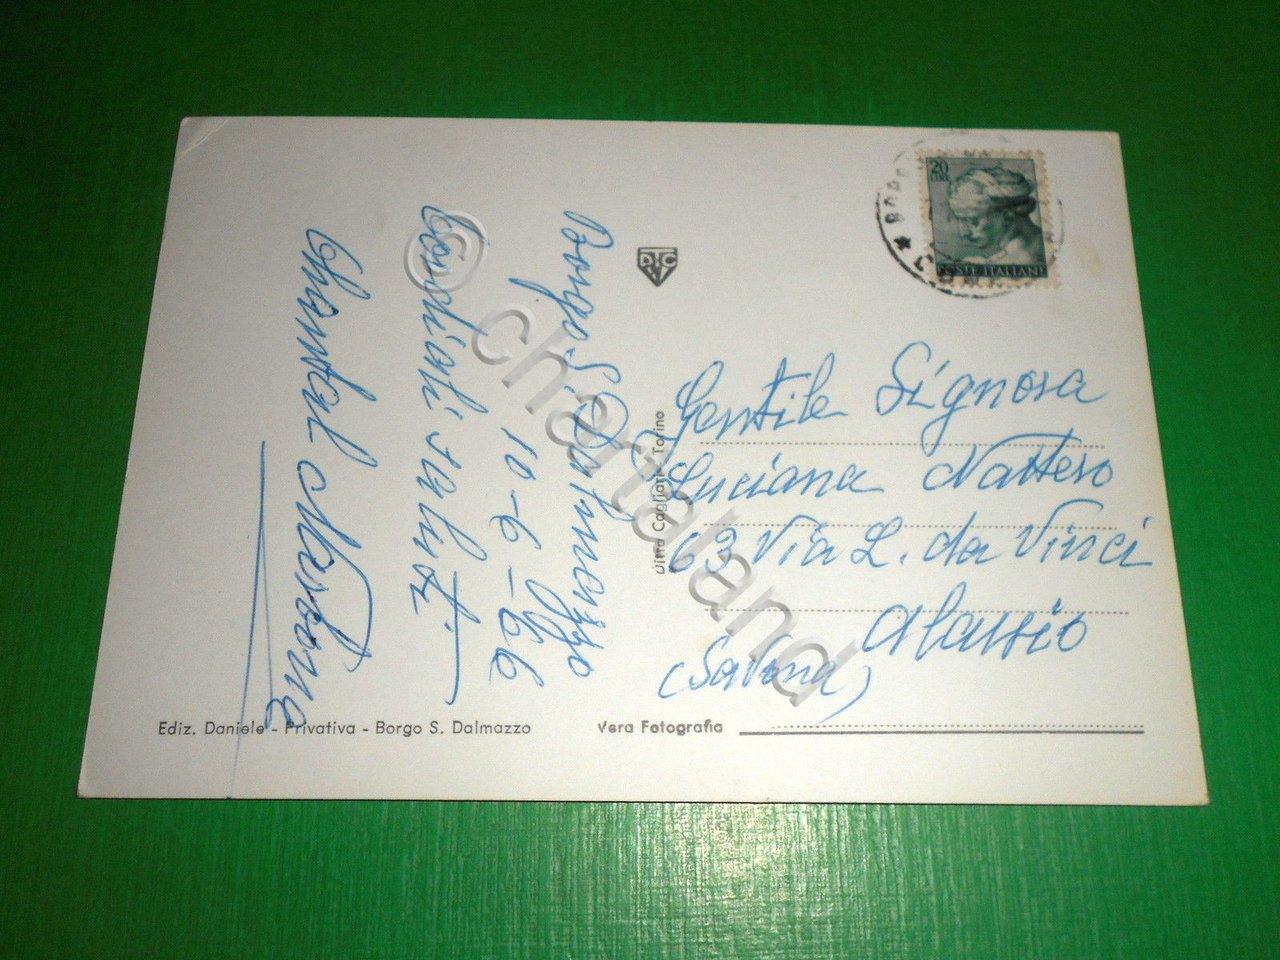 Borgo S. Dalmazzo
10-6-66
Cordiali saluti
Chantal
DCT
Ditta Cagliari - Torino
20
LIRE
POSTE ITALIANE
Gentile Signora
Luciana Nattero
63 Via L. da Vinci
Alassio
(Savona)
Ediz. Daniele - Privativa - Borgo S. Dalmazzo
Vera Fotografia
© chartaland